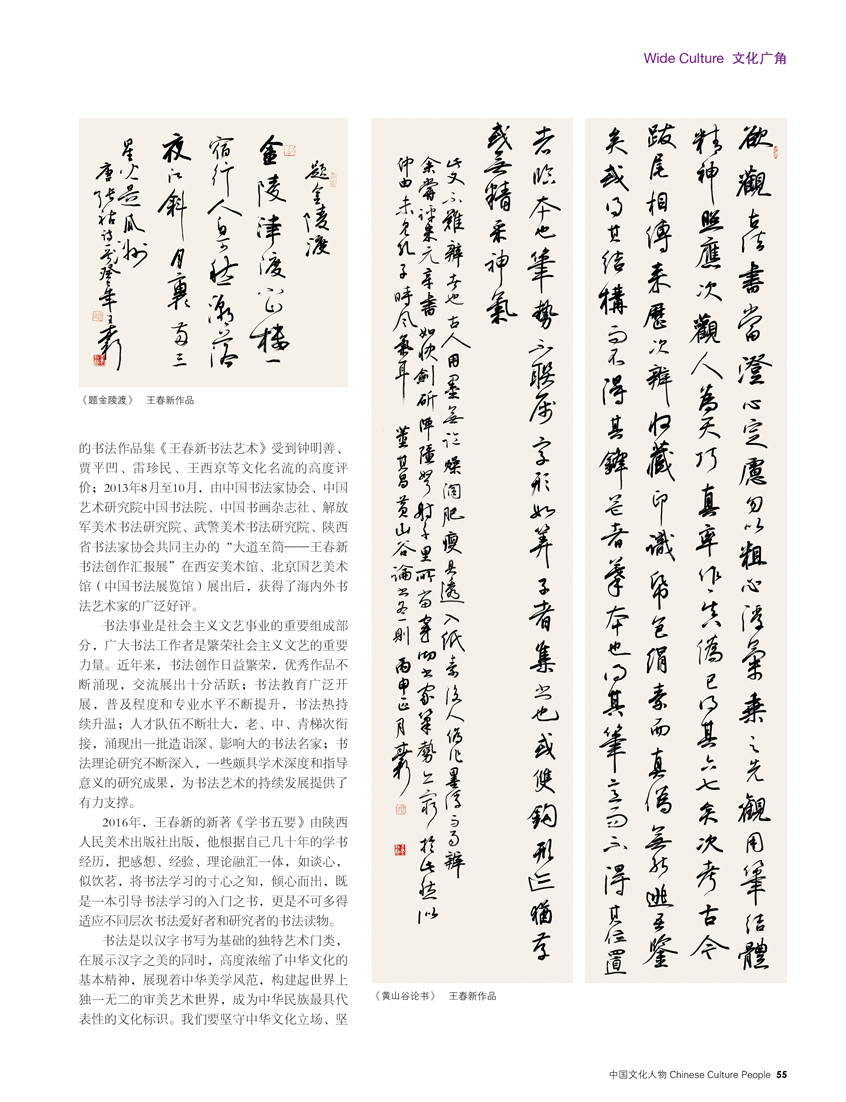 Wide Culture 文化广角
題金陵渡
金陵津渡小山樓一
宿行人自可愁潮落
夜江斜月裏兩三
星火是瓜洲
唐張祜詩
《题金陵渡》 王春新作品
的书法作品集《王春新书法艺术》受到钟明善、
贾平凹、雷珍民、王西京等文化名流的高度评
价；2013年8月至10月，由中国书法家协会、中国
艺术研究院中国书法院、中国书画杂志社、解放
军美术书法研究院、武警美术书法研究院、陕西
省书法家协会共同主办的“大道至简——王春新
书法创作汇报展”在西安美术馆、北京国艺美术
馆（中国书法展览馆）展出后，获得了海内外书
法艺术家的广泛好评。
书法事业是社会主义文艺事业的重要组成部
分，广大书法工作者是繁荣社会主义文艺的重要
力量。近年来，书法创作日益繁荣，优秀作品不
断涌现，交流展出十分活跃；书法教育广泛开
展，普及程度和专业水平不断提升，书法热持
续升温；人才队伍不断壮大，老、中、青梯次衔
接，涌现出一批造诣深、影响大的书法名家；书
法理论研究不断深入，一些颇具学术深度和指导
意义的研究成果，为书法艺术的持续发展提供了
有力支撑。
2016年，王春新的新著《学书五要》由陕西
人民美术出版社出版，他根据自己几十年的学书
经历，把感想、经验、理论融汇一体，如谈心，
似饮茗，将书法学习的寸心之知，倾心而出，既
是一本引导书法学习的入门之书，更是不可多得
适应不同层次书法爱好者和研究者的书法读物。
书法是以汉字书写为基础的独特艺术门类，
在展示汉字之美的同时，高度浓缩了中华文化的
基本精神，展现着中华美学风范，构建起世界上
独一无二的审美艺术世界，成为中华民族最具代
表性的文化标识。我们要坚守中华文化立场、坚
欲觀古法書當澄心定慮勿以粗心浮氣乘之先觀用筆結體
精神照應次觀人為天巧真率作作真偽已得其六七矣次考古今
跋尾相傳來歷次辨收藏印識紙色絹素而真偽無能逃吾鑒
矣或得其結構而不得其鋒芒者摹本也得其筆意而不得其位置
者臨本也筆勢不聯属字形如筭子者集書也或雙鈎形迹猶存
或無精采神氣
此又不難辨者也古人用墨無論燥潤肥瘦具透入紙素後人偽作墨浮而易辨
余嘗評米元章書如快劍斫陣強弩射千里所當穿徹書家筆勢亦窮於此然似
仲由未見孔子時風氣耳 董其昌黃山谷論書各一則 丙申正月春新
《黄山谷论书》 王春新作品
中国文化人物 Chinese Culture People 55